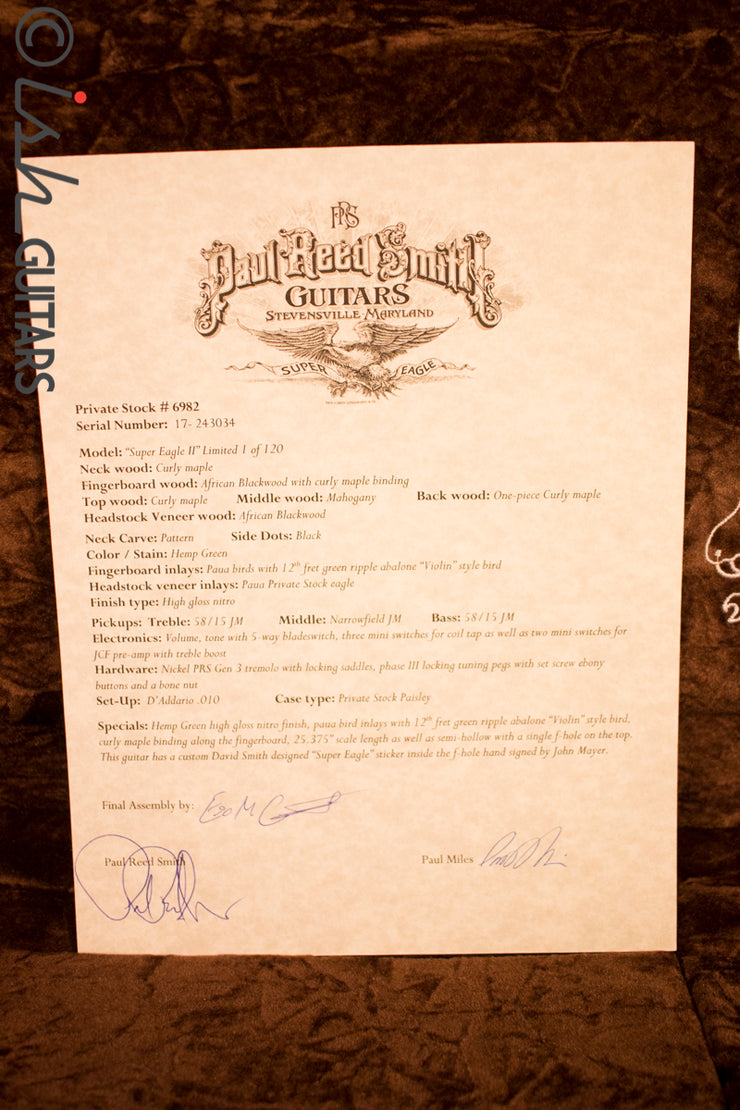 © ish GUITARS
PRS
Paul Reed Smith
GUITARS
STEVENSVILLE MARYLAND
SUPER EAGLE
Private Stock # 6982
Serial Number: 17- 243034
Model: "Super Eagle II" Limited 1 of 120
Neck wood: Curly maple
Fingerboard wood: African Blackwood with curly maple binding
Top wood: Curly maple Middle wood: Mahogany Back wood: One-piece Curly maple
Headstock Veneer wood: African Blackwood
Neck Carve: Pattern Side Dots: Black
Color / Stain: Hemp Green
Fingerboard inlays: Paua birds with 12th fret green ripple abalone "Violin" style bird
Headstock veneer inlays: Paua Private Stock eagle
Finish type: High gloss nitro
Pickups: Treble: 58/15 JM Middle: Narrowfield JM Bass: 58/15 JM
Electronics: Volume, tone with 5-way bladeswitch, three mini switches for coil tap as well as two mini switches for
JCF pre-amp with treble boost
Hardware: Nickel PRS Gen 3 tremolo with locking saddles, phase III locking tuning pegs with set screw ebony
buttons and a bone nut
Set-Up: D'Addario .010 Case type: Private Stock Paisley
Specials: Hemp Green high gloss nitro finish, paua bird inlays with 12th fret green ripple abalone "Violin" style bird,
curly maple binding along the fingerboard, 25.375" scale length as well as semi-hollow with a single f-hole on the top.
This guitar has a custom David Smith designed "Super Eagle" sticker inside the f-hole hand signed by John Mayer.
Final Assembly by:
Paul Reed Smith Paul Miles
2